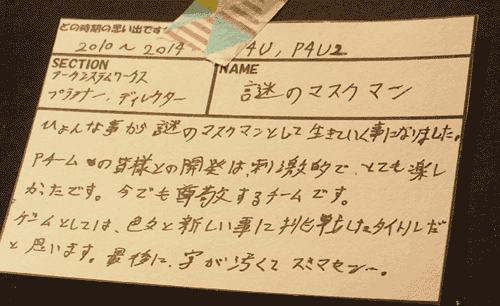 どの時期の思い出です
2010〜2014 P4U, P4U2
SECTION
アークシステムワークス
プランナー、ディレクター
NAME
謎のマスクマン
ひょんな事から謎のマスクマンとして生きていく事になりました。
Pチームの皆様との開発は、刺激的で、とても楽し
かったです。今でも尊敬するチームです。
ゲームとしては、色々と新しい事に挑戦したタイトルだ
と思います。最後に、字が汚くてスミマセンー。